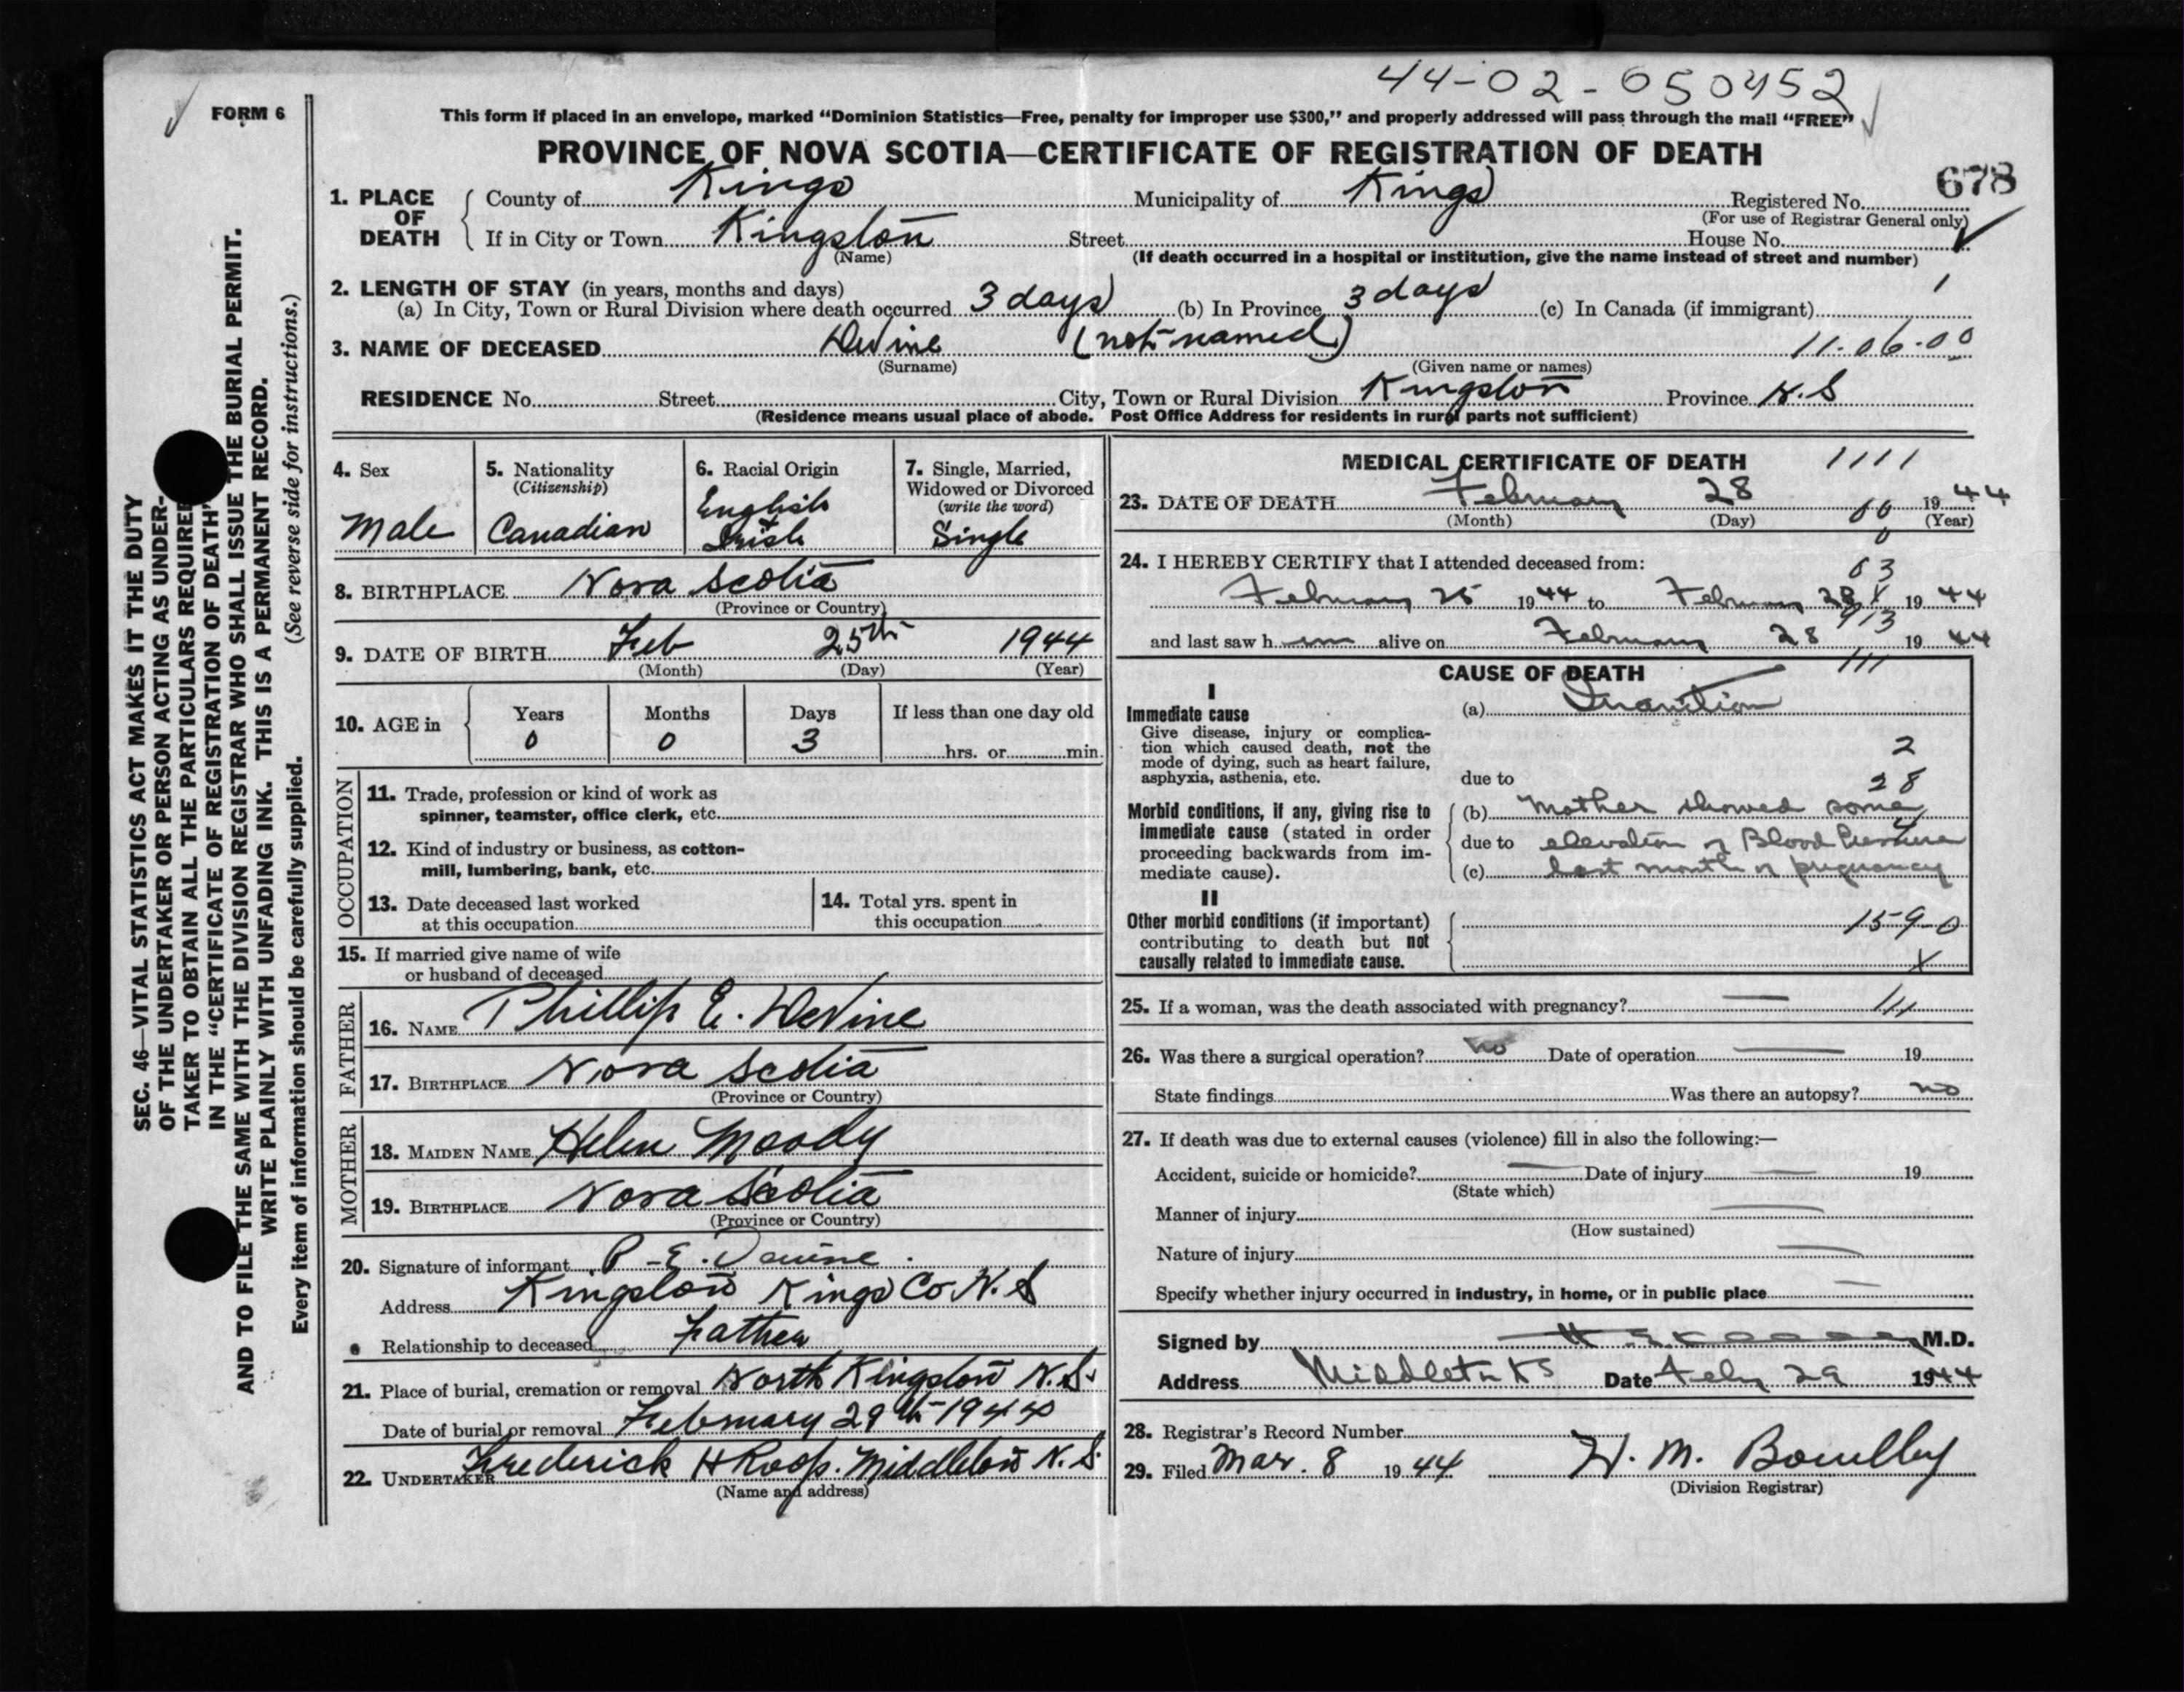 44-02-050452
FORM 6
This form if placed in an envelope, marked "Dominion Statistics—Free, penalty for improper use $300," and properly addressed will pass through the mail "FREE"
PROVINCE OF NOVA SCOTIA—CERTIFICATE OF REGISTRATION OF DEATH
678
1. PLACE OF DEATH County of Kings Municipality of Kings Registered No.
(For use of Registrar General only)
If in City or Town Kingston Street House No.
(Name) (If death occurred in a hospital or institution, give the name instead of street and number)
2. LENGTH OF STAY (in years, months and days)
(a) In City, Town or Rural Division where death occurred 3 days (b) In Province 3 days (c) In Canada (if immigrant)
1
3. NAME OF DECEASED DeVine (not named) 11.06.00
(Surname) (Given name or names)
RESIDENCE No. Street City, Town or Rural Division Kingston Province N.S
(Residence means usual place of abode. Post Office Address for residents in rural parts not sufficient)
4. Sex
Male
5. Nationality
(Citizenship)
Canadian
6. Racial Origin
English
Irish
7. Single, Married,
Widowed or Divorced
(write the word)
Single
8. BIRTHPLACE Nova Scotia
(Province or Country)
9. DATE OF BIRTH Feb 25th 1944
(Month) (Day) (Year)
10. AGE in Years Months Days If less than one day old
0 0 3 hrs. or min.
OCCUPATION
11. Trade, profession or kind of work as
spinner, teamster, office clerk, etc.
12. Kind of industry or business, as cotton-
mill, lumbering, bank, etc.
13. Date deceased last worked
at this occupation
14. Total yrs. spent in
this occupation
15. If married give name of wife
or husband of deceased
FATHER
16. NAME Phillip E. DeVine
17. BIRTHPLACE Nova Scotia
(Province or Country)
MOTHER
18. MAIDEN NAME Helen Moody
19. BIRTHPLACE Nova Scotia
(Province or Country)
20. Signature of informant P-E. Devine
Address Kingston Kings Co N.S
Relationship to deceased Father
21. Place of burial, cremation or removal North Kingston N.S.
Date of burial or removal February 29th 1944
22. UNDERTAKER Frederick H Roop. Middleton N.S.
(Name and address)
MEDICAL CERTIFICATE OF DEATH 1111
23. DATE OF DEATH February 28 1944
(Month) (Day) 00 (Year)
0
24. I HEREBY CERTIFY that I attended deceased from: 03
February 25 1944 to February 28 X 1944
913
and last saw h im alive on February 28 1944
111
CAUSE OF DEATH
I
Immediate cause
Give disease, injury or complica-
tion which caused death, not the
mode of dying, such as heart failure,
asphyxia, asthenia, etc.
(a) Inanition
2
due to 28
Morbid conditions, if any, giving rise to
immediate cause (stated in order
proceeding backwards from im-
mediate cause).
(b) Mother showed some
4
due to elevation of Blood Pressure
(c) last month of pregnancy
II
Other morbid conditions (if important)
contributing to death but not
causally related to immediate cause.
159-0
X
25. If a woman, was the death associated with pregnancy? — 111
26. Was there a surgical operation? no Date of operation — 19
State findings Was there an autopsy? no
27. If death was due to external causes (violence) fill in also the following:—
Accident, suicide or homicide? — Date of injury — 19
(State which)
Manner of injury —
(How sustained)
Nature of injury —
Specify whether injury occurred in industry, in home, or in public place —
Signed by M.D.
Address Middleton NS Date Feby 29 1944
28. Registrar's Record Number
29. Filed Mar. 8 1944 M.
(Division Registrar)
SEC. 46—VITAL STATISTICS ACT MAKES IT THE DUTY
OF THE UNDERTAKER OR PERSON ACTING AS UNDER-
TAKER TO OBTAIN ALL THE PARTICULARS REQUIRED
IN THE "CERTIFICATE OF REGISTRATION OF DEATH"
AND TO FILE THE SAME WITH THE DIVISION REGISTRAR WHO SHALL ISSUE THE BURIAL PERMIT.
WRITE PLAINLY WITH UNFADING INK. THIS IS A PERMANENT RECORD.
Every item of information should be carefully supplied. (See reverse side for instructions.)